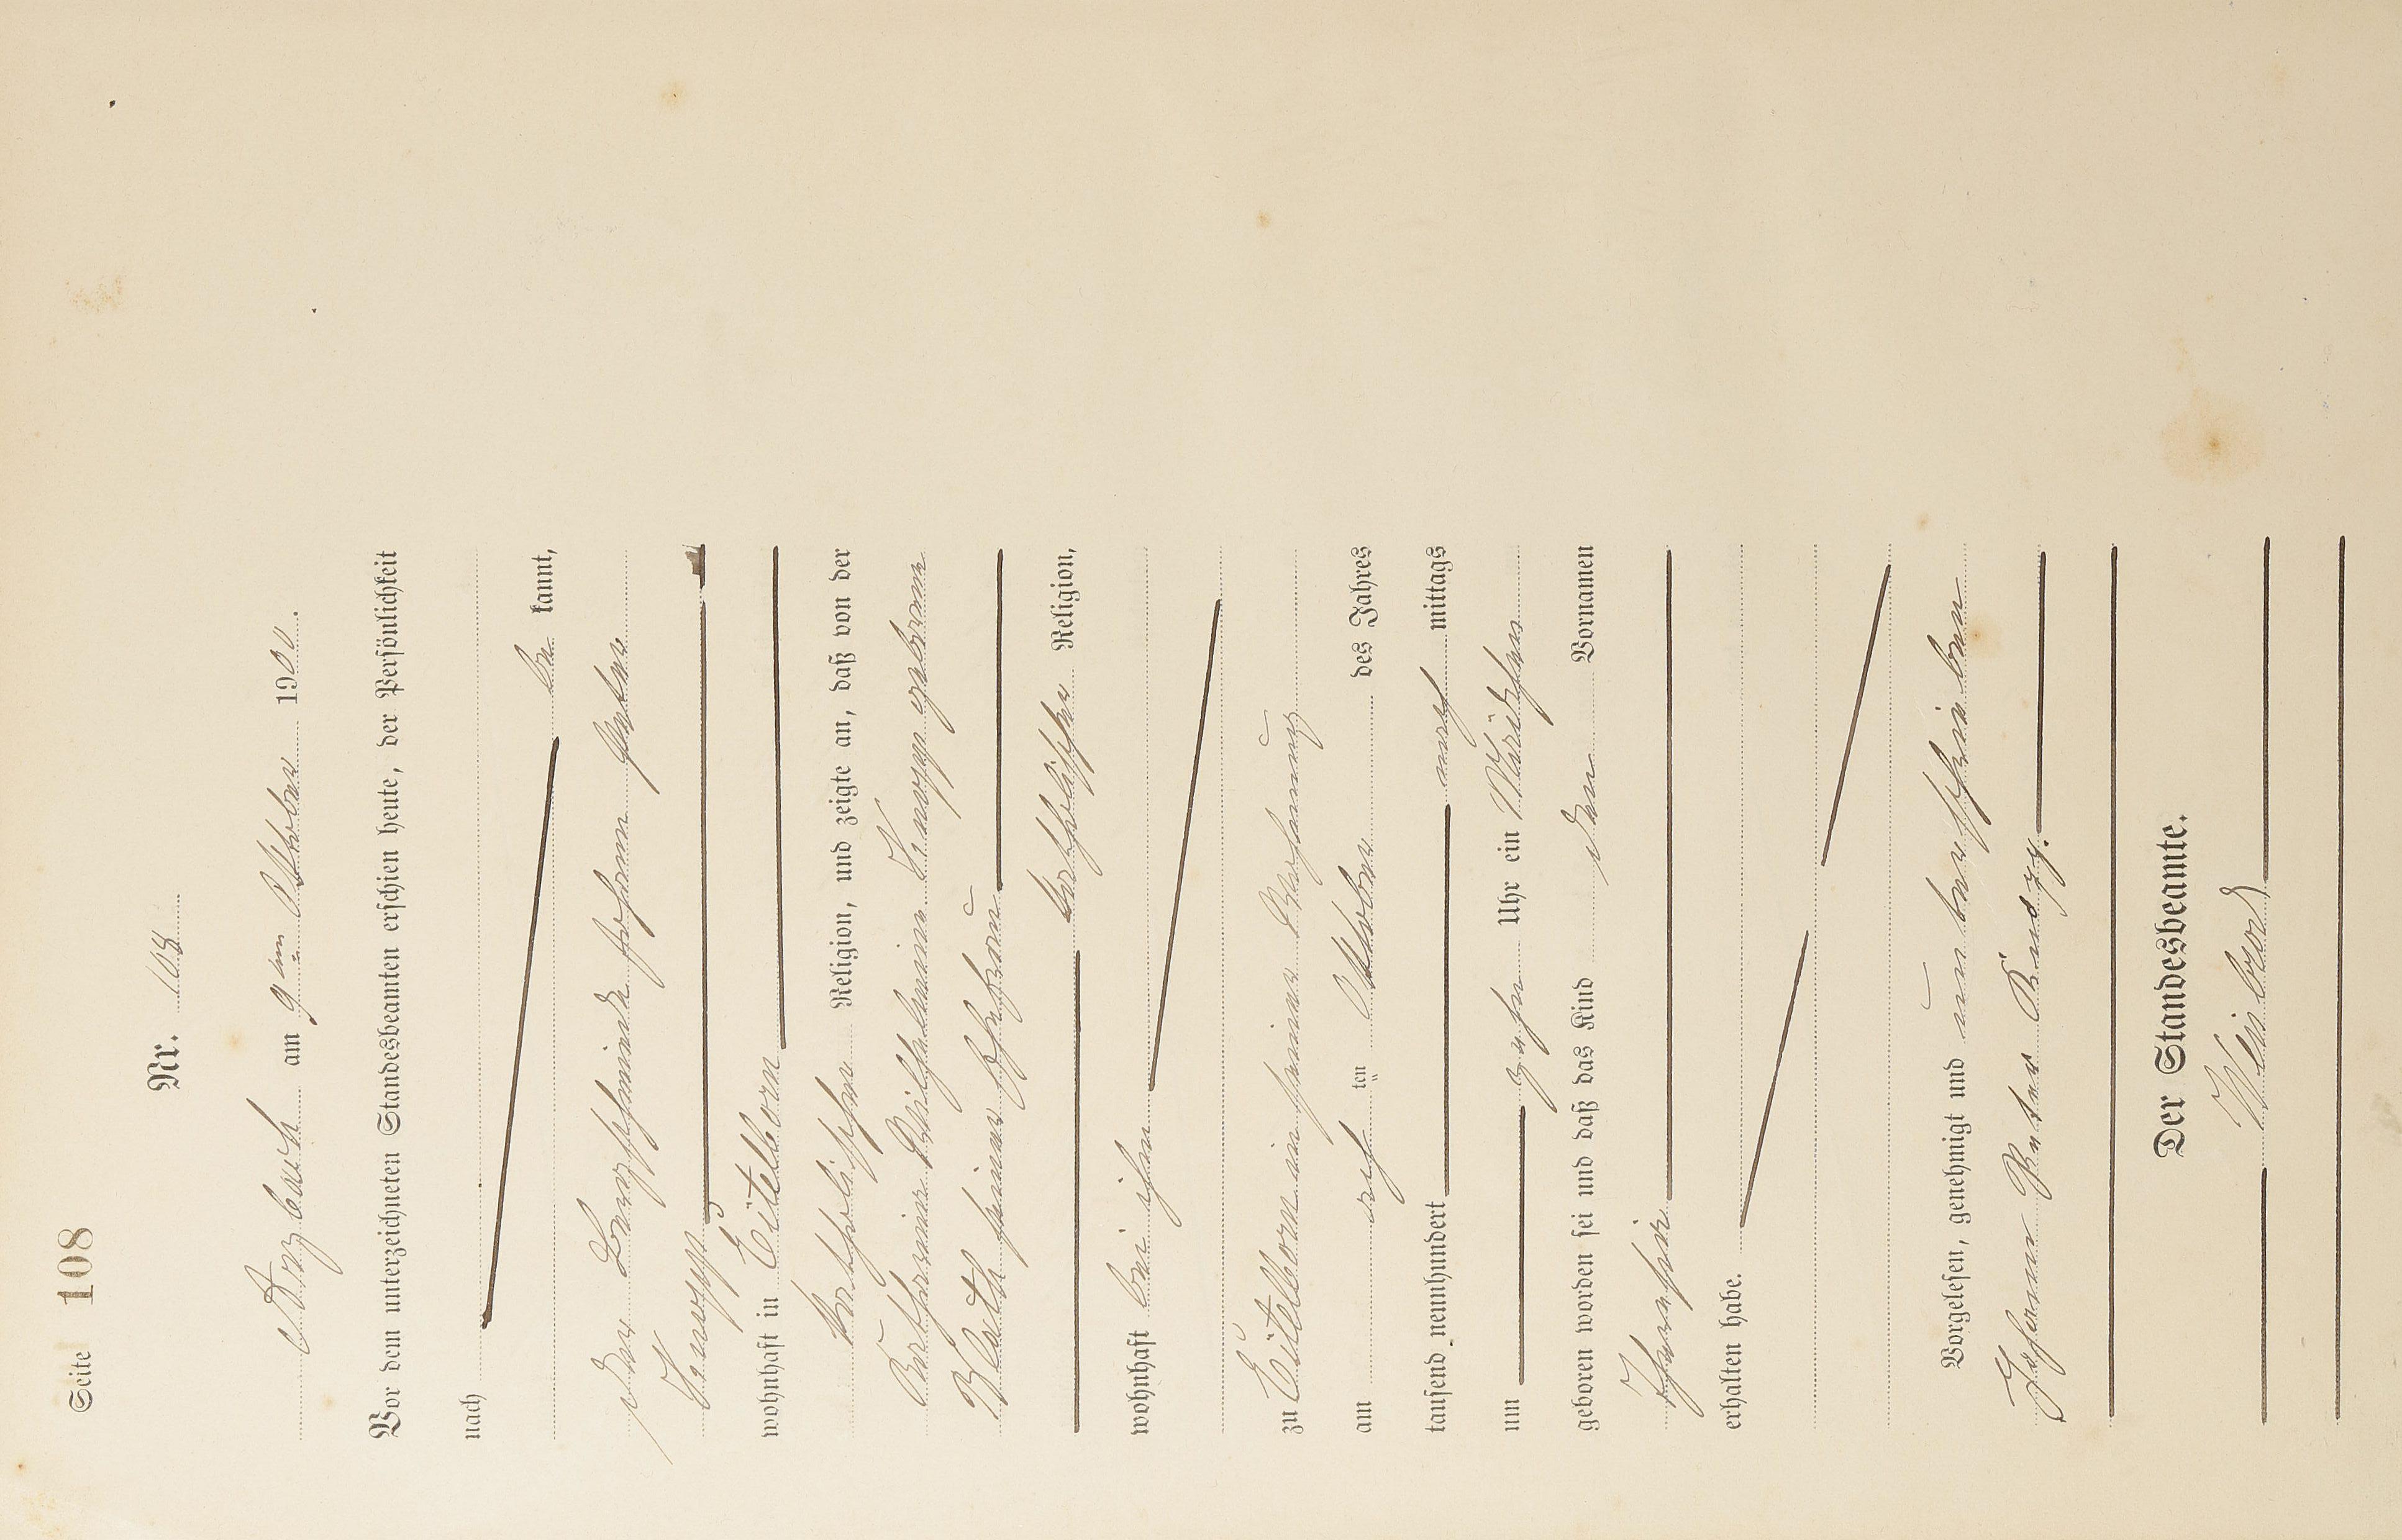 Seite 108
Nr. 108
Arzbach am 9ten Oktober 1900.
Vor dem unterzeichneten Standesbeamten erschien heute, der Persönlichkeit
nach
be kannt,
der Bergschmied Johann Peter
Knopp
wohnhaft in Eitelborn
katholischer Religion, und zeigte an, daß von der
Katharina Wilhelmine Knopp geborenen
Blath seiner Ehefrau
katholischer Religion,
wohnhaft bei ihm
zu Eitelborn in seiner Wohnung
am acht ten Oktober des Jahres
tausend neunhundert nach mittags
um zehn Uhr ein Mädchen
geboren worden sei und daß das Kind den Vornamen
Theresia
erhalten habe.
Vorgelesen, genehmigt und unterschrieben
Johann Peter Knopp.
Der Standesbeamte.